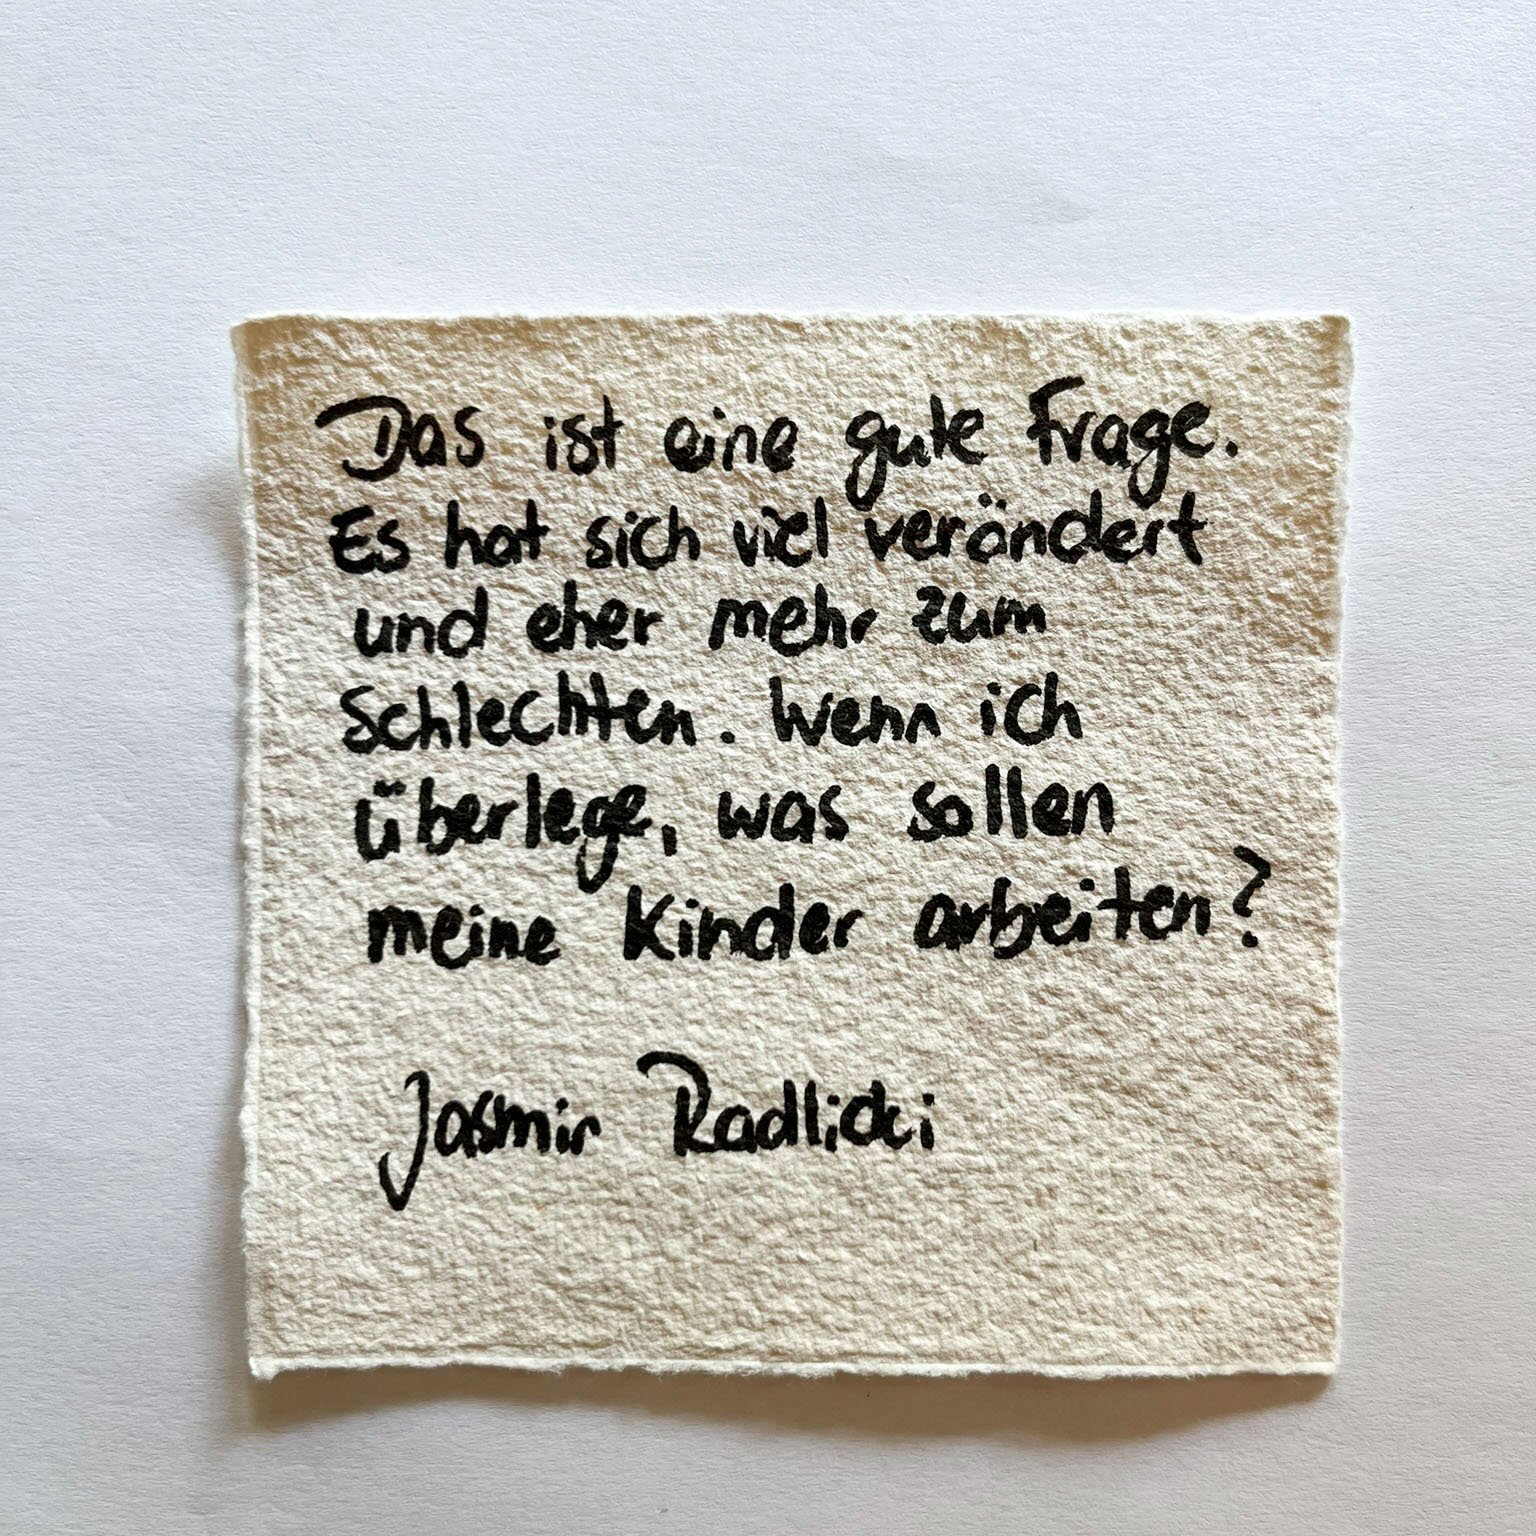 Das ist eine gute Frage.
Es hat sich viel verändert
und eher mehr zum
Schlechten. Wenn ich
überlege, was sollen
meine Kinder arbeiten?
Jasmin Radlicki